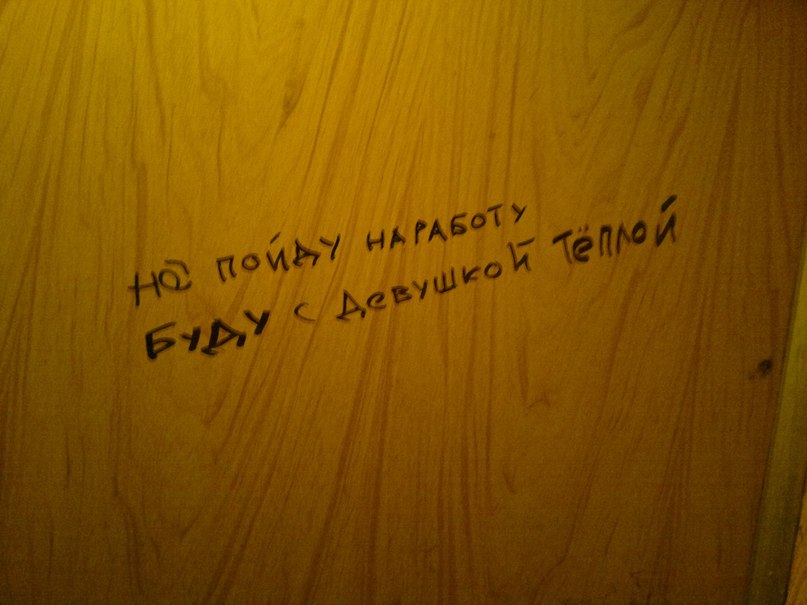 не пойду на работу
буду с девушкой тёплой